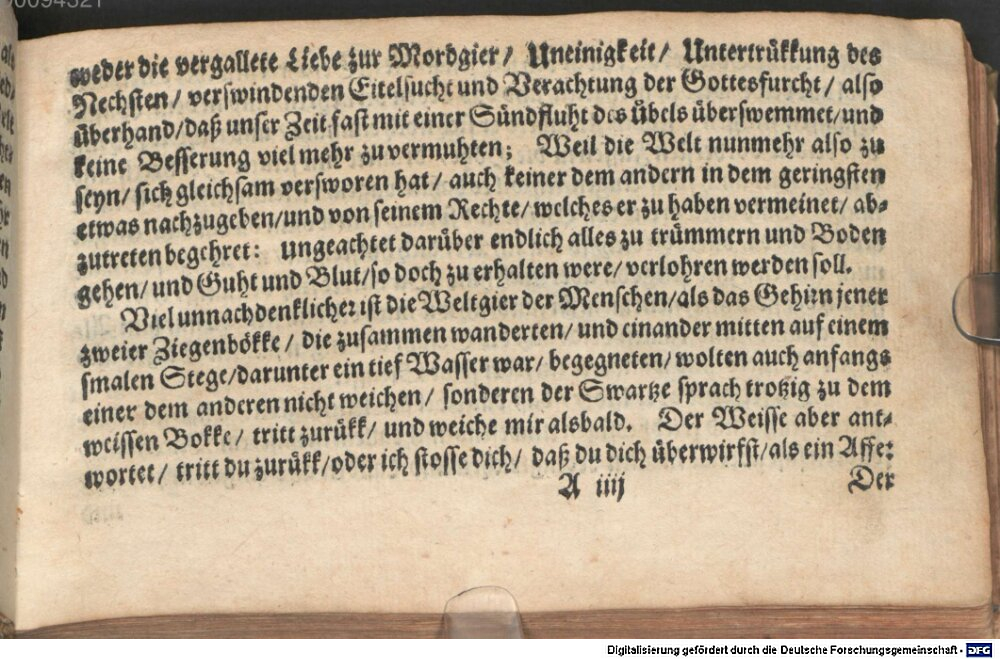 weder die vergallete Liebe zur Mordgier/ Uneinigkeit/ Untertrükkung des
Nechsten/ verswindenden Eitelsucht und Verachtung der Gottesfurcht/ also
überhand/daß unser Zeit fast mit einer Sündfluht des übels überswemmet/und
keine Besserung viel mehr zu vermuhten; Weil die Welt nunmehr also zu
seyn/ sich gleichsam versworen hat/ auch keiner dem andern in dem geringsten
etwas nachzugeben/und von seinem Rechte/ welches er zu haben vermeinet/ ab-
zutreten begehret: ungeachtet darüber endlich alles zu trümmern und Boden
gehen/ und Guht und Blut/so doch zu erhalten were/ verlohren werden soll.
Viel unnachdenklicher ist die Weltgier der Menschen/als das Gehirn jener
zweier Ziegenbökke/ die zusammen wanderten/ und einander mitten auf einem
smalen Stege/darunter ein tief Wasser war/ begegneten/ wolten auch anfangs
einer dem anderen nicht weichen/ sonderen der Swartze sprach trotzig zu dem
weissen Bokke/ tritt zurükk/ und weiche mir alsbald. Der Weisse aber ant-
wortet/ tritt du zurükk/oder ich stosse dich/ daß du dich überwirfst/als ein Affe:
A iiij Der
Digitalisierung gefördert durch die Deutsche Forschungsgemeinschaft - DFG